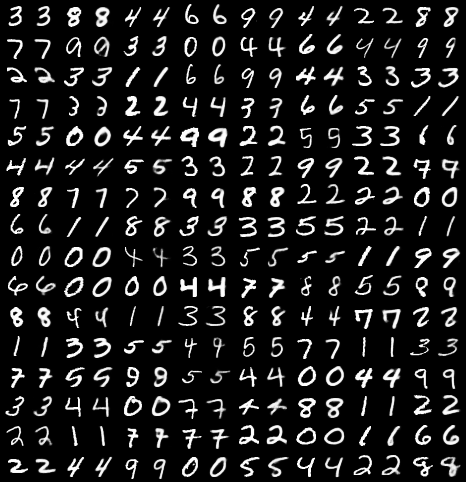 3 3 8 8 4 4 6 6 9 9 4 4 2 2 8 8
7 7 9 9 3 3 0 0 4 4 6 6 4 4 9 9
2 2 3 3 1 1 6 6 9 9 4 4 3 3 3 3
7 7 3 3 2 2 4 4 3 3 6 6 5 5 1 1
5 5 0 0 4 4 9 9 2 2 5 5 3 3 6 6
4 4 4 4 5 5 3 3 2 2 9 9 2 2 7 7
8 8 7 7 7 7 9 9 8 8 2 2 2 2 0 0
6 6 1 1 8 8 3 3 3 3 5 5 2 2 1 1
0 0 0 0 4 4 3 3 5 5 5 5 1 1 9 9
6 6 0 0 0 0 4 4 7 7 8 8 5 5 9 9
8 8 4 4 1 1 3 3 8 8 4 4 7 7 2 2
1 1 3 3 5 5 4 9 5 5 7 7 1 1 3 3
7 7 5 5 9 9 5 5 4 4 0 0 4 4 9 9
3 3 4 4 0 0 7 7 4 4 8 8 1 1 2 2
2 2 1 1 7 7 7 7 2 2 0 0 1 1 6 6
2 2 4 4 9 9 0 0 5 5 4 4 2 2 9 8